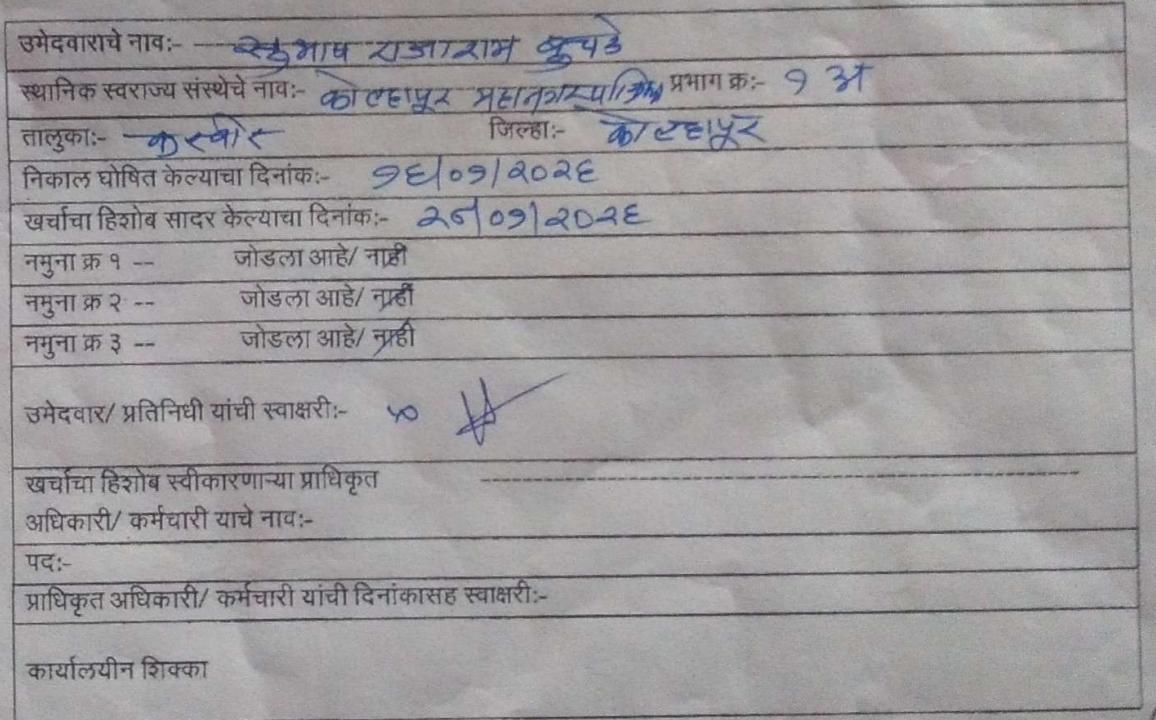 उमेदवाराचे नावः- सुभाष राजाराम बुचडे
स्थानिक स्वराज्य संस्थेचे नावः- कोल्हापूर महानगरपालिका प्रभाग क्रः- १ अ
तालुकाः- करवीर जिल्हाः- कोल्हापूर
निकाल घोषित केल्याचा दिनांकः- १६/०१/२०२६
खर्चाचा हिशोब सादर केल्याचा दिनांकः- /०१/२०२६
नमुना क्र १ -- जोडला आहे/ नाही
नमुना क्र २ -- जोडला आहे/ नाही
नमुना क्र ३ -- जोडला आहे/ नाही
उमेदवार/ प्रतिनिधी यांची स्वाक्षरीः-
खर्चाचा हिशोब स्वीकारणाऱ्या प्राधिकृत
अधिकारी/ कर्मचारी याचे नावः-
पदः-
प्राधिकृत अधिकारी/ कर्मचारी यांची दिनांकासह स्वाक्षरीः-
कार्यालयीन शिक्का